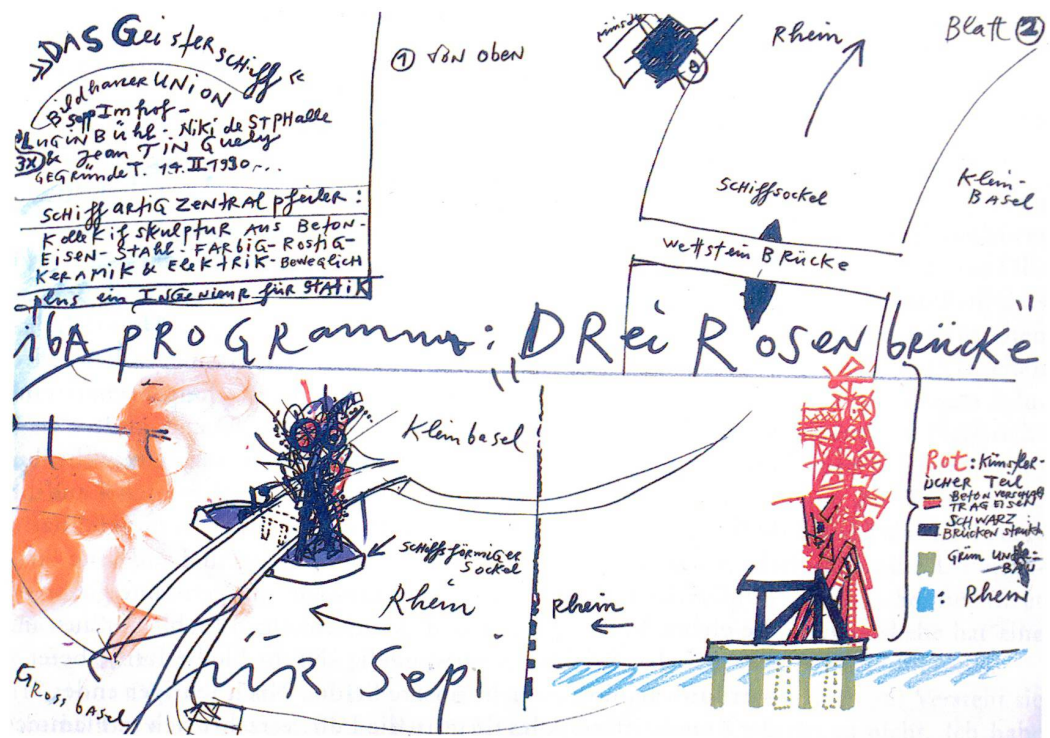 »DAS Geisterschiff«
Bildhauer UNiON
B Sepp Imhof -
LUGiNBühl - Niki de STPHalle
3X & Jean TiNGuely
GEGRündeT. 14.II 1990...
SCHiFFARTiG ZENTRALpfeiler:
KolleKtif SKulptUR AUS BeToN-
EiSEN- STAhl- FARbiG- RoStiG-
KERAMiK & ElEKTRiK- BEWEGLiCH
plus ein INGENieuR füR STATiK
① VoN obEN
münster
Rhein
Blatt ②
SCHiffSockel
Klein-
BASEL
WettsteinBRücke
ibA PROGRamm: "DRei RosenbRücke"
Kleinbasel
Schiffsförmiger
Sockel
Rhein
Rhein
füR Sepi
GRossbasel
Rot: Künstler-
ischer TEiL
BEToN VERSCHALT
TRAGEiSEN
SCHWARZ
BRückEN struktur
GRüN UNTER-
BAU
: Rhein